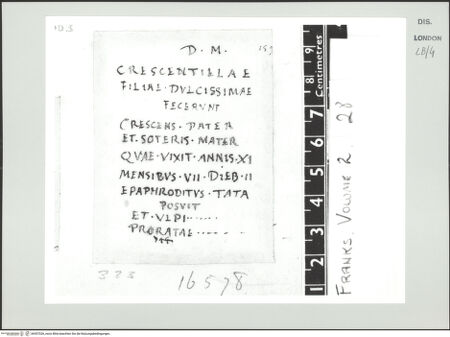 DIS.
LONDON
LB/4
D · M ·
CRESCENTILLAE
FILIAE · DVLCISSIMAE
FECERVNT
CRESCENS · PATER
ET · SOTERIS · MATER
QVAE · VIXIT · ANNIS · XI
MENSIBVS · VII · DIEB · II
EPAPHRODITVS · TATA
POSVIT
ET · VLPI ······
PRORATAE ·····
323
16578
1 2 3 4 5 6 7 8 9
Centimetres
FRANKS. VOLUME 2. 28